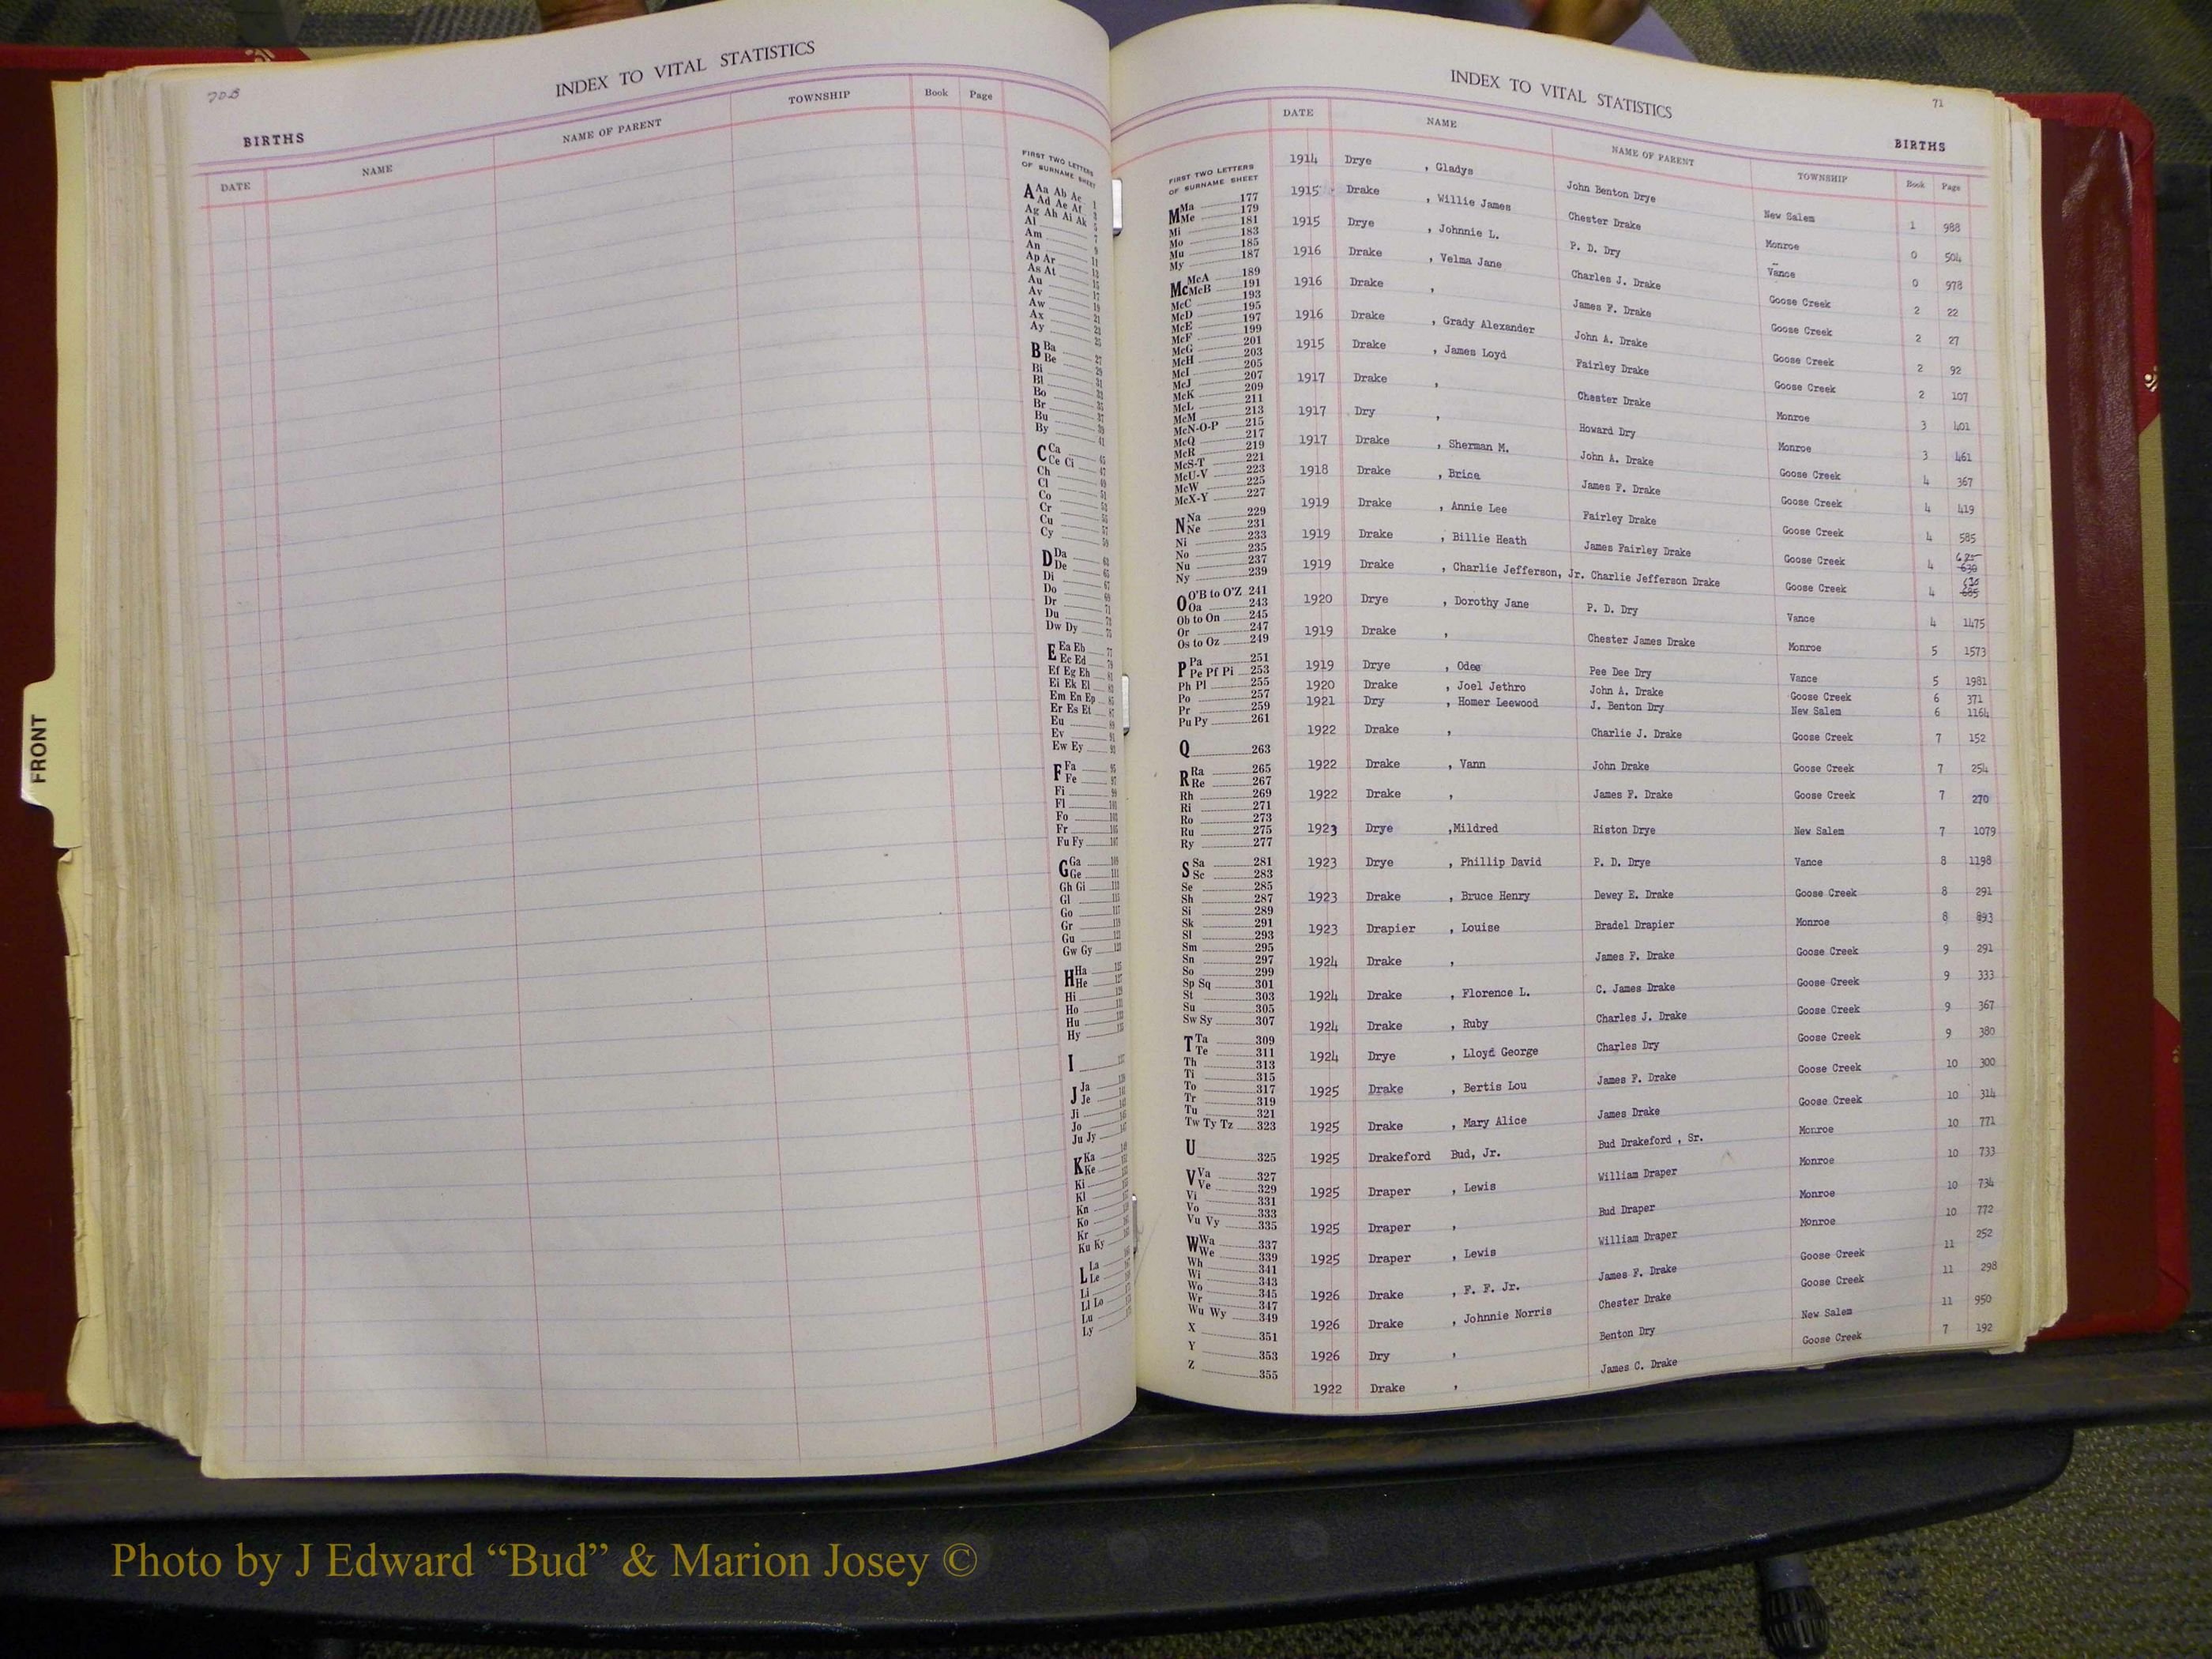 70B
INDEX TO VITAL STATISTICS
BIRTHS
DATE NAME NAME OF PARENT TOWNSHIP Book Page
FIRST TWO LETTERS
OF SURNAME SHEET
A Aa Ab Ac 1
Ad Ae Af 3
Ag Ah Ai Ak 5
Al 7
Am 9
An 11
Ap Ar 13
As At 15
Au 17
Av 19
Aw 21
Ax 23
Ay 25
B Ba 27
Be 29
Bi 31
Bl 33
Bo 35
Br 37
Bu 39
By 41
C Ca 45
Ce Ci 47
Ch 49
Cl 51
Co 53
Cr 55
Cu 57
Cy 59
D Da 63
De 65
Di 67
Do 69
Dr 71
Du 73
Dw Dy 75
E Ea Eb 77
Ec Ed 79
Ef Eg Eh 81
Ei Ek El 83
Em En Ep 85
Er Es Et 87
Eu 89
Ev 91
Ew Ey 93
F Fa 95
Fe 97
Fi 99
Fl 101
Fo 103
Fr 105
Fu Fy 107
G Ga 109
Ge 111
Gh Gi 113
Gl 115
Go 117
Gr 119
Gu 121
Gw Gy 123
H Ha 125
He 127
Hi 129
Ho 131
Hu 133
Hy 135
I 137
J Ja
Je
Ji
Jo
Ju Jy
K Ka
Ke
Ki
Kl
Kn
Ko
Kr
Ku Ky
L La
Le
Li
Ll Lo
Lu
Ly
FRONT
INDEX TO VITAL STATISTICS
71
BIRTHS
DATE NAME NAME OF PARENT TOWNSHIP Book Page
FIRST TWO LETTERS
OF SURNAME SHEET
M Ma 177
Me 179
Mi 181
Mo 183
Mu 185
My 187
Mc McA 189
McB 191
McC 193
McD 195
McE 197
McF 199
McG 201
McH 203
McI 205
McJ 207
McK 209
McL 211
McM 213
McN-O-P 215
McQ 217
McR 219
McS-T 221
McU-V 223
McW 225
McX-Y 227
N Na 229
Ne 231
Ni 233
No 235
Nu 237
Ny 239
O O'B to O'Z 241
Oa 243
Ob to On 245
Or 247
Os to Oz 249
P Pa 251
Pe Pf Pi 253
Ph Pl 255
Po 257
Pr 259
Pu Py 261
Q 263
R Ra 265
Re 267
Rh 269
Ri 271
Ro 273
Ru 275
Ry 277
S Sa 281
Sc 283
Se 285
Sh 287
Si 289
Sk 291
Sl 293
Sm 295
Sn 297
So 299
Sp Sq 301
St 303
Su 305
Sw Sy 307
T Ta 309
Te 311
Th 313
Ti 315
To 317
Tr 319
Tu 321
Tw Ty Tz 323
U 325
V Va 327
Ve 329
Vi 331
Vo 333
Vu Vy 335
W Wa 337
We 339
Wh 341
Wi 343
Wo 345
Wr 347
Wu Wy 349
X 351
Y 353
Z 355
1914 Drye , Gladys John Benton Drye New Salem 1 988
1915 Drake , Willie James Chester Drake Monroe 0 504
1915 Drye , Johnnie L. P. D. Dry Vance 0 978
1916 Drake , Velma Jane Charles J. Drake Goose Creek 2 22
1916 Drake , James F. Drake Goose Creek 2 27
1916 Drake , Grady Alexander John A. Drake Goose Creek 2 92
1915 Drake , James Loyd Fairley Drake Goose Creek 2 107
1917 Drake , Chester Drake Monroe 3 401
1917 Dry , Howard Dry Monroe 3 461
1917 Drake , Sherman M. John A. Drake Goose Creek 4 367
1918 Drake , Brice James F. Drake Goose Creek 4 419
1919 Drake , Annie Lee Fairley Drake Goose Creek 4 585
1919 Drake , Billie Heath James Fairley Drake Goose Creek 4 625 630
1919 Drake , Charlie Jefferson, Jr. Charlie Jefferson Drake Goose Creek 4 630 685
1920 Drye , Dorothy Jane P. D. Dry Vance 4 1475
1919 Drake , Chester James Drake Monroe 5 1573
1919 Drye , Odee Pee Dee Dry Vance 5 1981
1920 Drake , Joel Jethro John A. Drake Goose Creek 6 371
1921 Dry , Homer Leewood J. Benton Dry New Salem 6 1164
1922 Drake , Charlie J. Drake Goose Creek 7 152
1922 Drake , Vann John Drake Goose Creek 7 254
1922 Drake , James F. Drake Goose Creek 7 270
1923 Drye ,Mildred Riston Drye New Salem 7 1079
1923 Drye , Phillip David P. D. Drye Vance 8 1198
1923 Drake , Bruce Henry Dewey E. Drake Goose Creek 8 291
1923 Drapier , Louise Bradel Drapier Monroe 8 893
1924 Drake , James F. Drake Goose Creek 9 291
1924 Drake , Florence L. C. James Drake Goose Creek 9 333
1924 Drake , Ruby Charles J. Drake Goose Creek 9 367
1924 Drye , Lloyd George Charles Dry Goose Creek 9 380
1925 Drake , Bertis Lou James F. Drake Goose Creek 10 300
1925 Drake , Mary Alice James Drake Goose Creek 10 314
1925 Drakeford Bud, Jr. Bud Drakeford , Sr. Monroe 10 771
1925 Draper , Lewis William Draper Monroe 10 733
1925 Draper , Bud Draper Monroe 10 734
1925 Draper , Lewis William Draper Monroe 10 772
1926 Drake , F. F. Jr. James F. Drake Goose Creek 11 252
1926 Drake , Johnnie Norris Chester Drake Goose Creek 11 298
1926 Dry , Benton Dry New Salem 11 950
1922 Drake , James C. Drake Goose Creek 7 192
Photo by J Edward “Bud” & Marion Josey ©